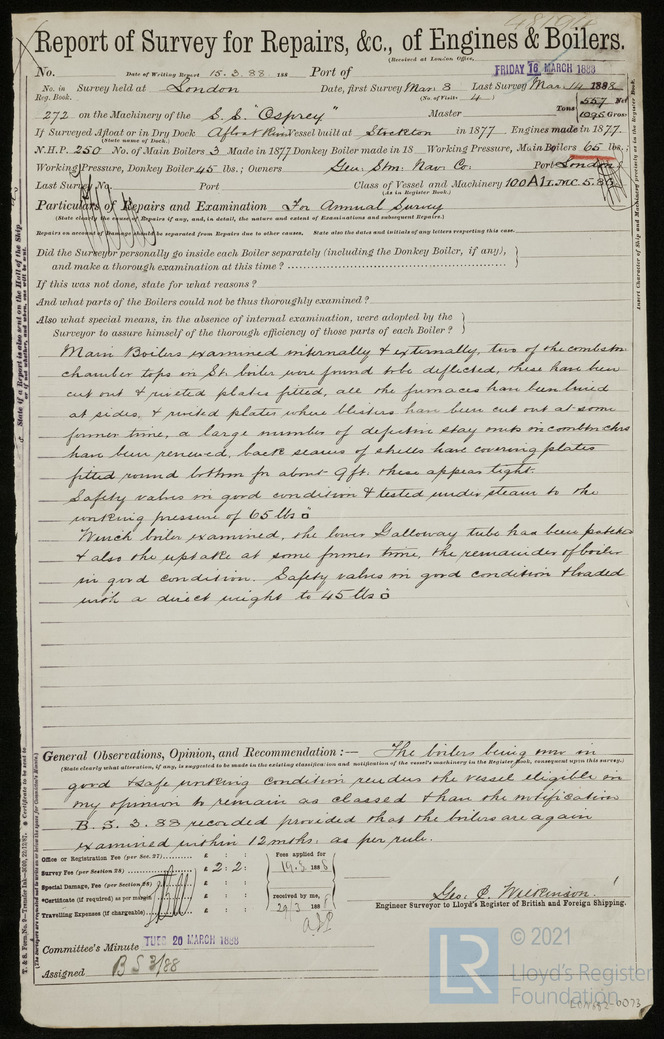 Report of Survey for Repairs, &c., of Engines & Boilers.
(Received at London Office,
No. Date of Writing Report 15.3.88 188 Port of FRIDAY 16 MARCH 1888
No. in Reg. Book. Survey held at London Date, first Survey Mar. 3 Last Survey Mar 14 1888
(No. of Visits 4)
272 on the Machinery of the S.S. "Osprey" Master Tons 557 Net 1095 Gross
If Surveyed Afloat or in Dry Dock Afloat Vessel built at Stockton in 1877 Engines made in 1877.
(State name of Dock.)
N.H.P. 250 No. of Main Boilers 3 Made in 1877 Donkey Boiler made in 18 Working Pressure, Main Boilers 65 lbs.;
Working Pressure, Donkey Boiler 45 lbs.; Owners Gen. Stm. Nav. Co. Port London
Last Survey No. Port Class of Vessel and Machinery 100A1 L.M.C. 5.
(As in Register Book.)
Particulars of Repairs and Examination For Annual Survey
(State clearly the cause of Repairs if any, and, in detail, the nature and extent of Examinations and subsequent Repairs.)
Repairs on account of Damage should be separated from Repairs due to other causes. State also the dates and initials of any letters respecting this case.
Did the Surveyor personally go inside each Boiler separately (including the Donkey Boiler, if any),
and make a thorough examination at this time?
If this was not done, state for what reasons?
And what parts of the Boilers could not be thus thoroughly examined?
Also what special means, in the absence of internal examination, were adopted by the
Surveyor to assure himself of the thorough efficiency of those parts of each Boiler?
Main Boilers examined internally & externally, two of the combstn
chamber tops in St. boiler were found to be deflected, these have been
cut out & riveted plates fitted, all the furnaces have been
at sides, & riveted plates where blisters have been cut out at some
former time, a large number of defective stay nuts in combtn chrs
have been renewed, back seams of shells have covering plates
fitted round bottom for about 9 ft. these appear tight.
Safety valves in good condition & tested under steam to the
working pressure of 65 lbs
Winch boiler examined, the lower Galloway tube has been patched
& also the uptake at some former time, the remainder of boiler
in good condition. Safety valves in good condition & loaded
with a direct weight to 45 lbs
General Observations, Opinion, and Recommendation :— The boilers being now in
(State clearly what alteration, if any, is suggested to be made in the existing classification and notification of the vessel's machinery in the Register Book, consequent upon this survey.)
good & safe working condition renders the vessel eligible in
my opinion to remain as classed & have the notification
B.S. 3.88 recorded provided that the boilers are again
examined within 12 mths. as per rule.
Office or Registration Fee (per Sec. 27) £ : :
Survey Fee (per Section 28) £ 2 : 2 :
Special Damage, Fee (per Section 28) £ : :
*Certificate (if required) as per margin £ : :
Travelling Expenses (if chargeable) £ : :
Fees applied for
19.3.1888
received by me,
29/3 1888
Geo. C. Wilkinson.
Engineer Surveyor to Lloyd's Register of British and Foreign Shipping.
Committee's Minute TUES 20 MARCH 1888
Assigned BS 3/88
Insert Character of Ship and Machinery precisely as in the Register Book.
LR © 2021
Lloyd's Register
Foundation